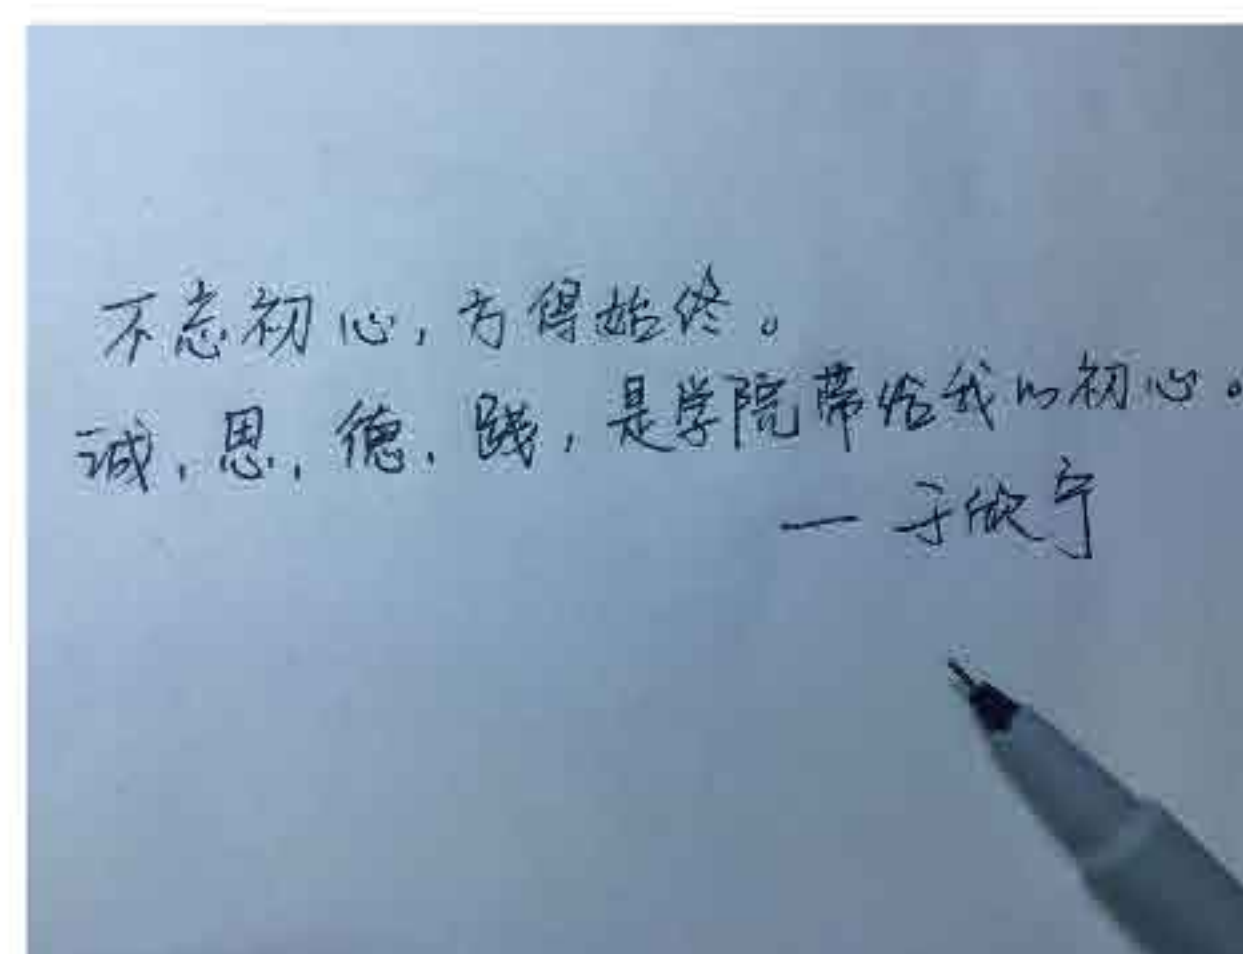 不忘初心,方得始终。
诚,思,德,践,是学院带给我的初心。
— 于欣宁